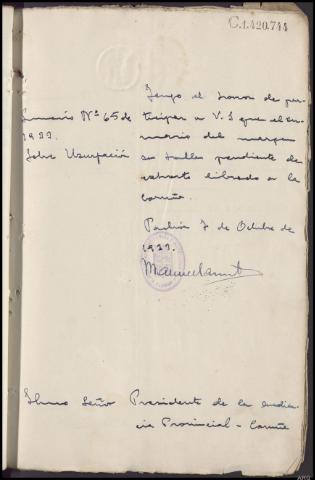 C.1.420.744
Tengo el honor de par-
Sumario Nº 65 de
1933.
Sobre Usurpación
ticipar a V. S que el su-
mario del margen
se halla pendiente de
exhorto librado a la
Coruña.
Padrón 7 de Octubre de
1933.
Ilmo Señor Presidente de la Audien-
cia Provincial - Coruña